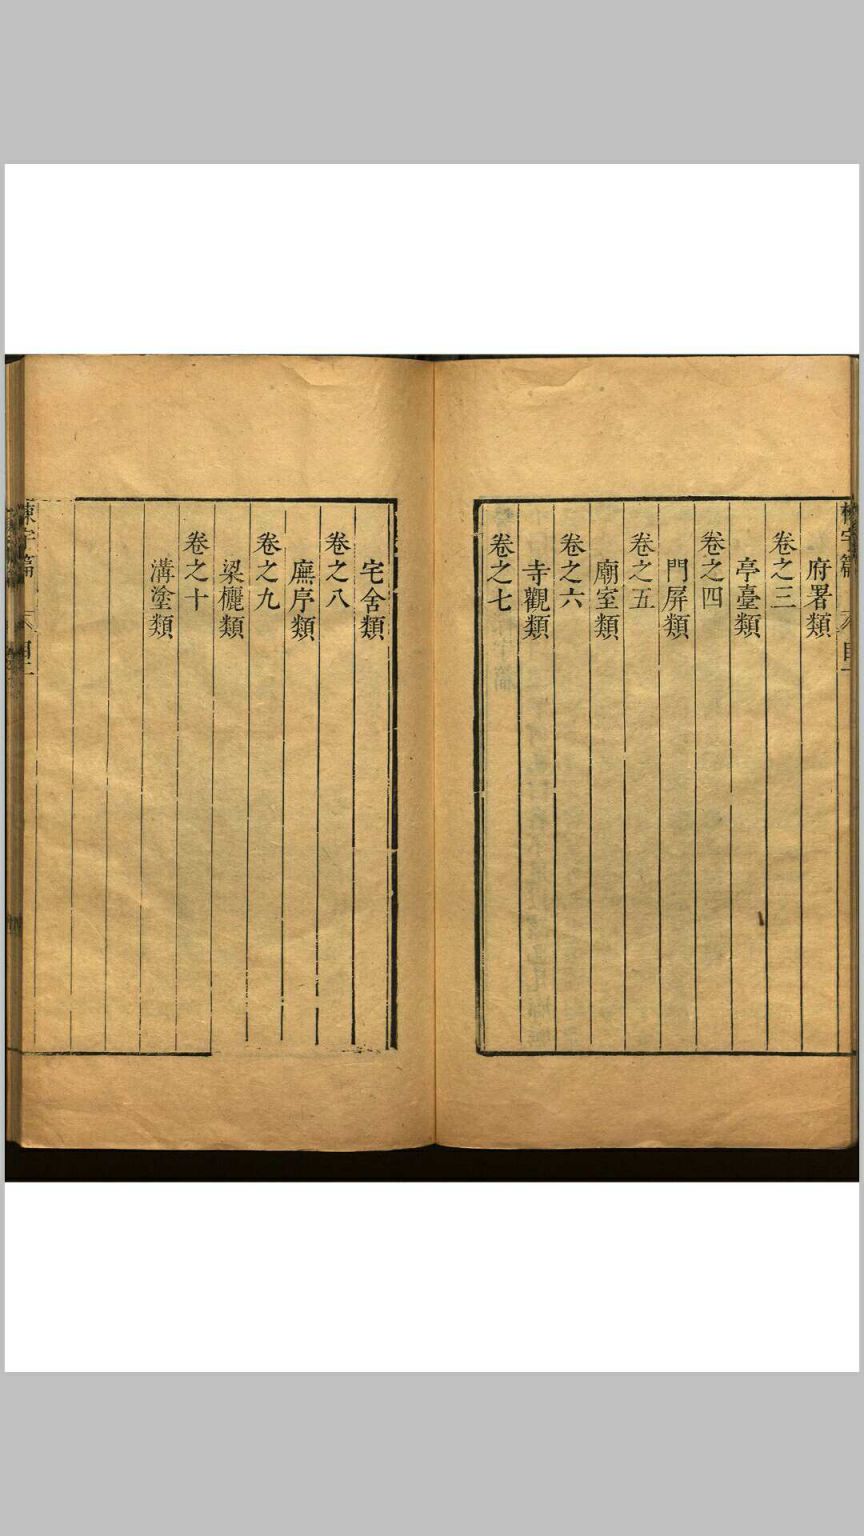 府署類
卷之三
亭臺類
卷之四
門屏類
卷之五
廟室類
卷之六
寺觀類
卷之七
宅舍類
卷之八
廡序類
卷之九
梁欐類
卷之十
溝塗類